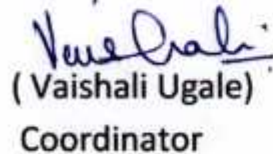 ( Vaishali Ugale)
Coordinator